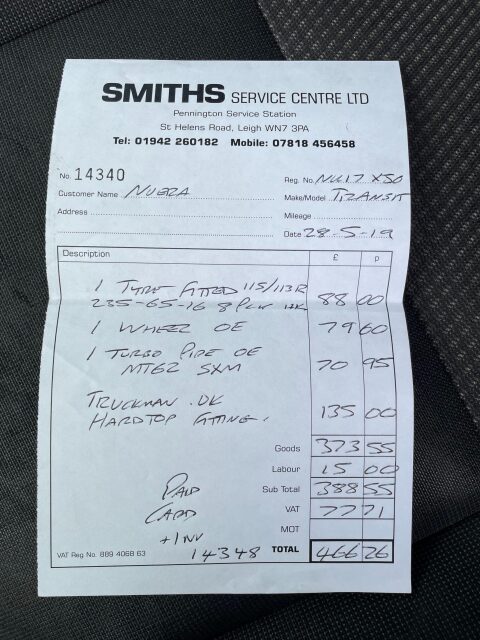 SMITHS SERVICE CENTRE LTD
Pennington Service Station
St Helens Road, Leigh WN7 3PA
Tel: 01942 260182 Mobile: 07818 456458
No. 14340 Reg. No. NU17 XSO
Customer Name NUERA Make/Model TRANSIT
Address Mileage
Date 28-5-19
Description £ p
1 TYRE FITTED 115/113R
235-65-16 8 PLY 88 00
1 WHEEL OE 79 60
1 TURBO PIPE OE
MT62 SXM 70 95
TRUCKMAN .UK
HARDTOP FITTING. 135 00
Goods 373 55
Labour 15 00
PAID Sub Total 388 55
CARD VAT 77 71
+ INV MOT
VAT Reg No. 889 4068 63 14348 TOTAL 466 26